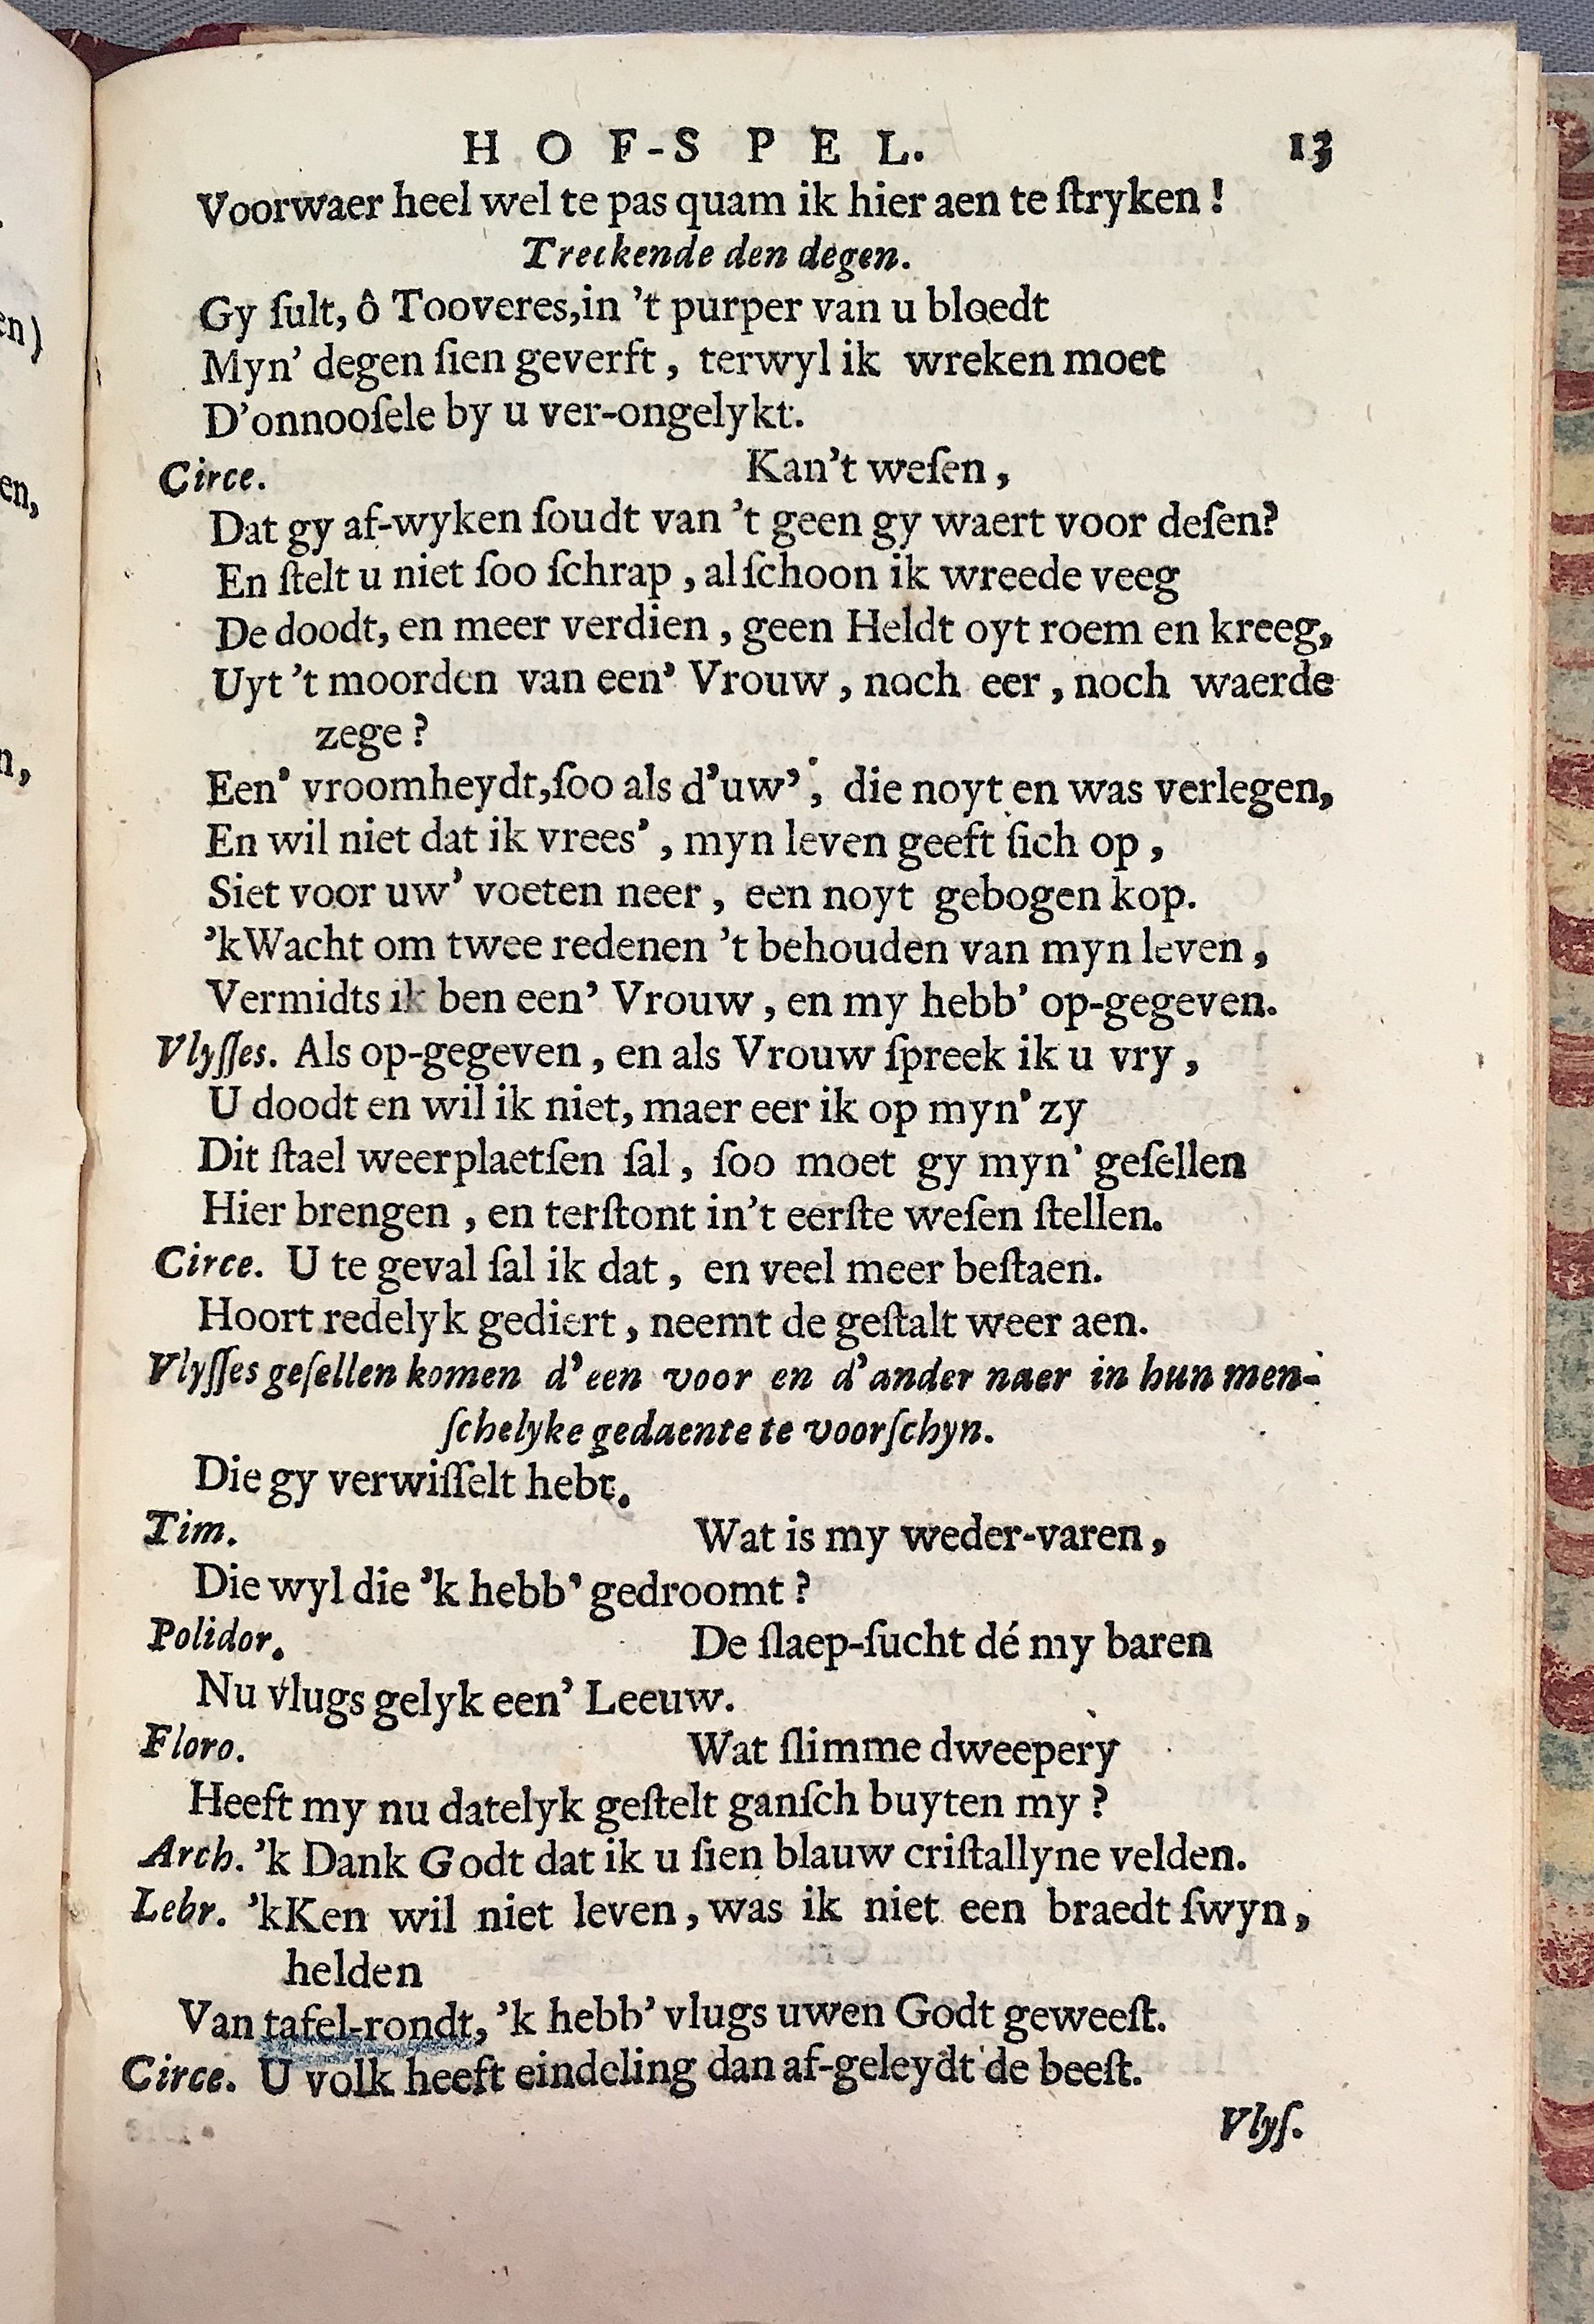 HOF-SPEL. 13
Voorwaer heel wel te pas quam ik hier aen te ſtryken!
Treckende den degen.
Gy ſult, ô Tooveres, in 't purper van u bloedt
Myn' degen ſien geverft, terwyl ik wreken moet
D'onnooſele by u ver-ongelykt.
Circe. Kan't weſen,
Dat gy af-wyken ſoudt van 't geen gy waert voor deſen?
En ſtelt u niet ſoo ſchrap, alſchoon ik wreede veeg
De doodt, en meer verdien, geen Heldt oyt roem en kreeg,
Uyt 't moorden van een' Vrouw, noch eer, noch waerde
zege?
Een' vroomheydt, ſoo als d'uw', die noyt en was verlegen,
En wil niet dat ik vrees', myn leven geeft ſich op,
Siet voor uw' voeten neer, een noyt gebogen kop.
'kWacht om twee redenen 't behouden van myn leven,
Vermidts ik ben een' Vrouw, en my hebb' op-gegeven.
Vlyſſes. Als op-gegeven, en als Vrouw ſpreek ik u vry,
U doodt en wil ik niet, maer eer ik op myn' zy
Dit ſtael weerplaetſen ſal, ſoo moet gy myn' geſellen
Hier brengen, en terſtont in't eerſte weſen ſtellen.
Circe. U te geval ſal ik dat, en veel meer beſtaen.
Hoort redelyk gediert, neemt de geſtalt weer aen.
Vlyſſes geſellen komen d'een voor en d'ander naer in hun men-
ſchelyke gedaente te voorſchyn.
Die gy verwiſſelt hebt.
Tim. Wat is my weder-varen,
Die wyl die 'k hebb' gedroomt?
Polidor. De ſlaep-ſucht dé my baren
Nu vlugs gelyk een' Leeuw.
Floro. Wat ſlimme dweepery
Heeft my nu datelyk geſtelt ganſch buyten my?
Arch. 'k Dank Godt dat ik u ſien blauw criſtallyne velden.
Lebr. 'kKen wil niet leven, was ik niet een braedt ſwyn,
helden
Van tafel-rondt, 'k hebb' vlugs uwen Godt geweeſt.
Circe. U volk heeft eindeling dan af-geleydt de beeſt.
Vlyſ.
en)
en,
n,